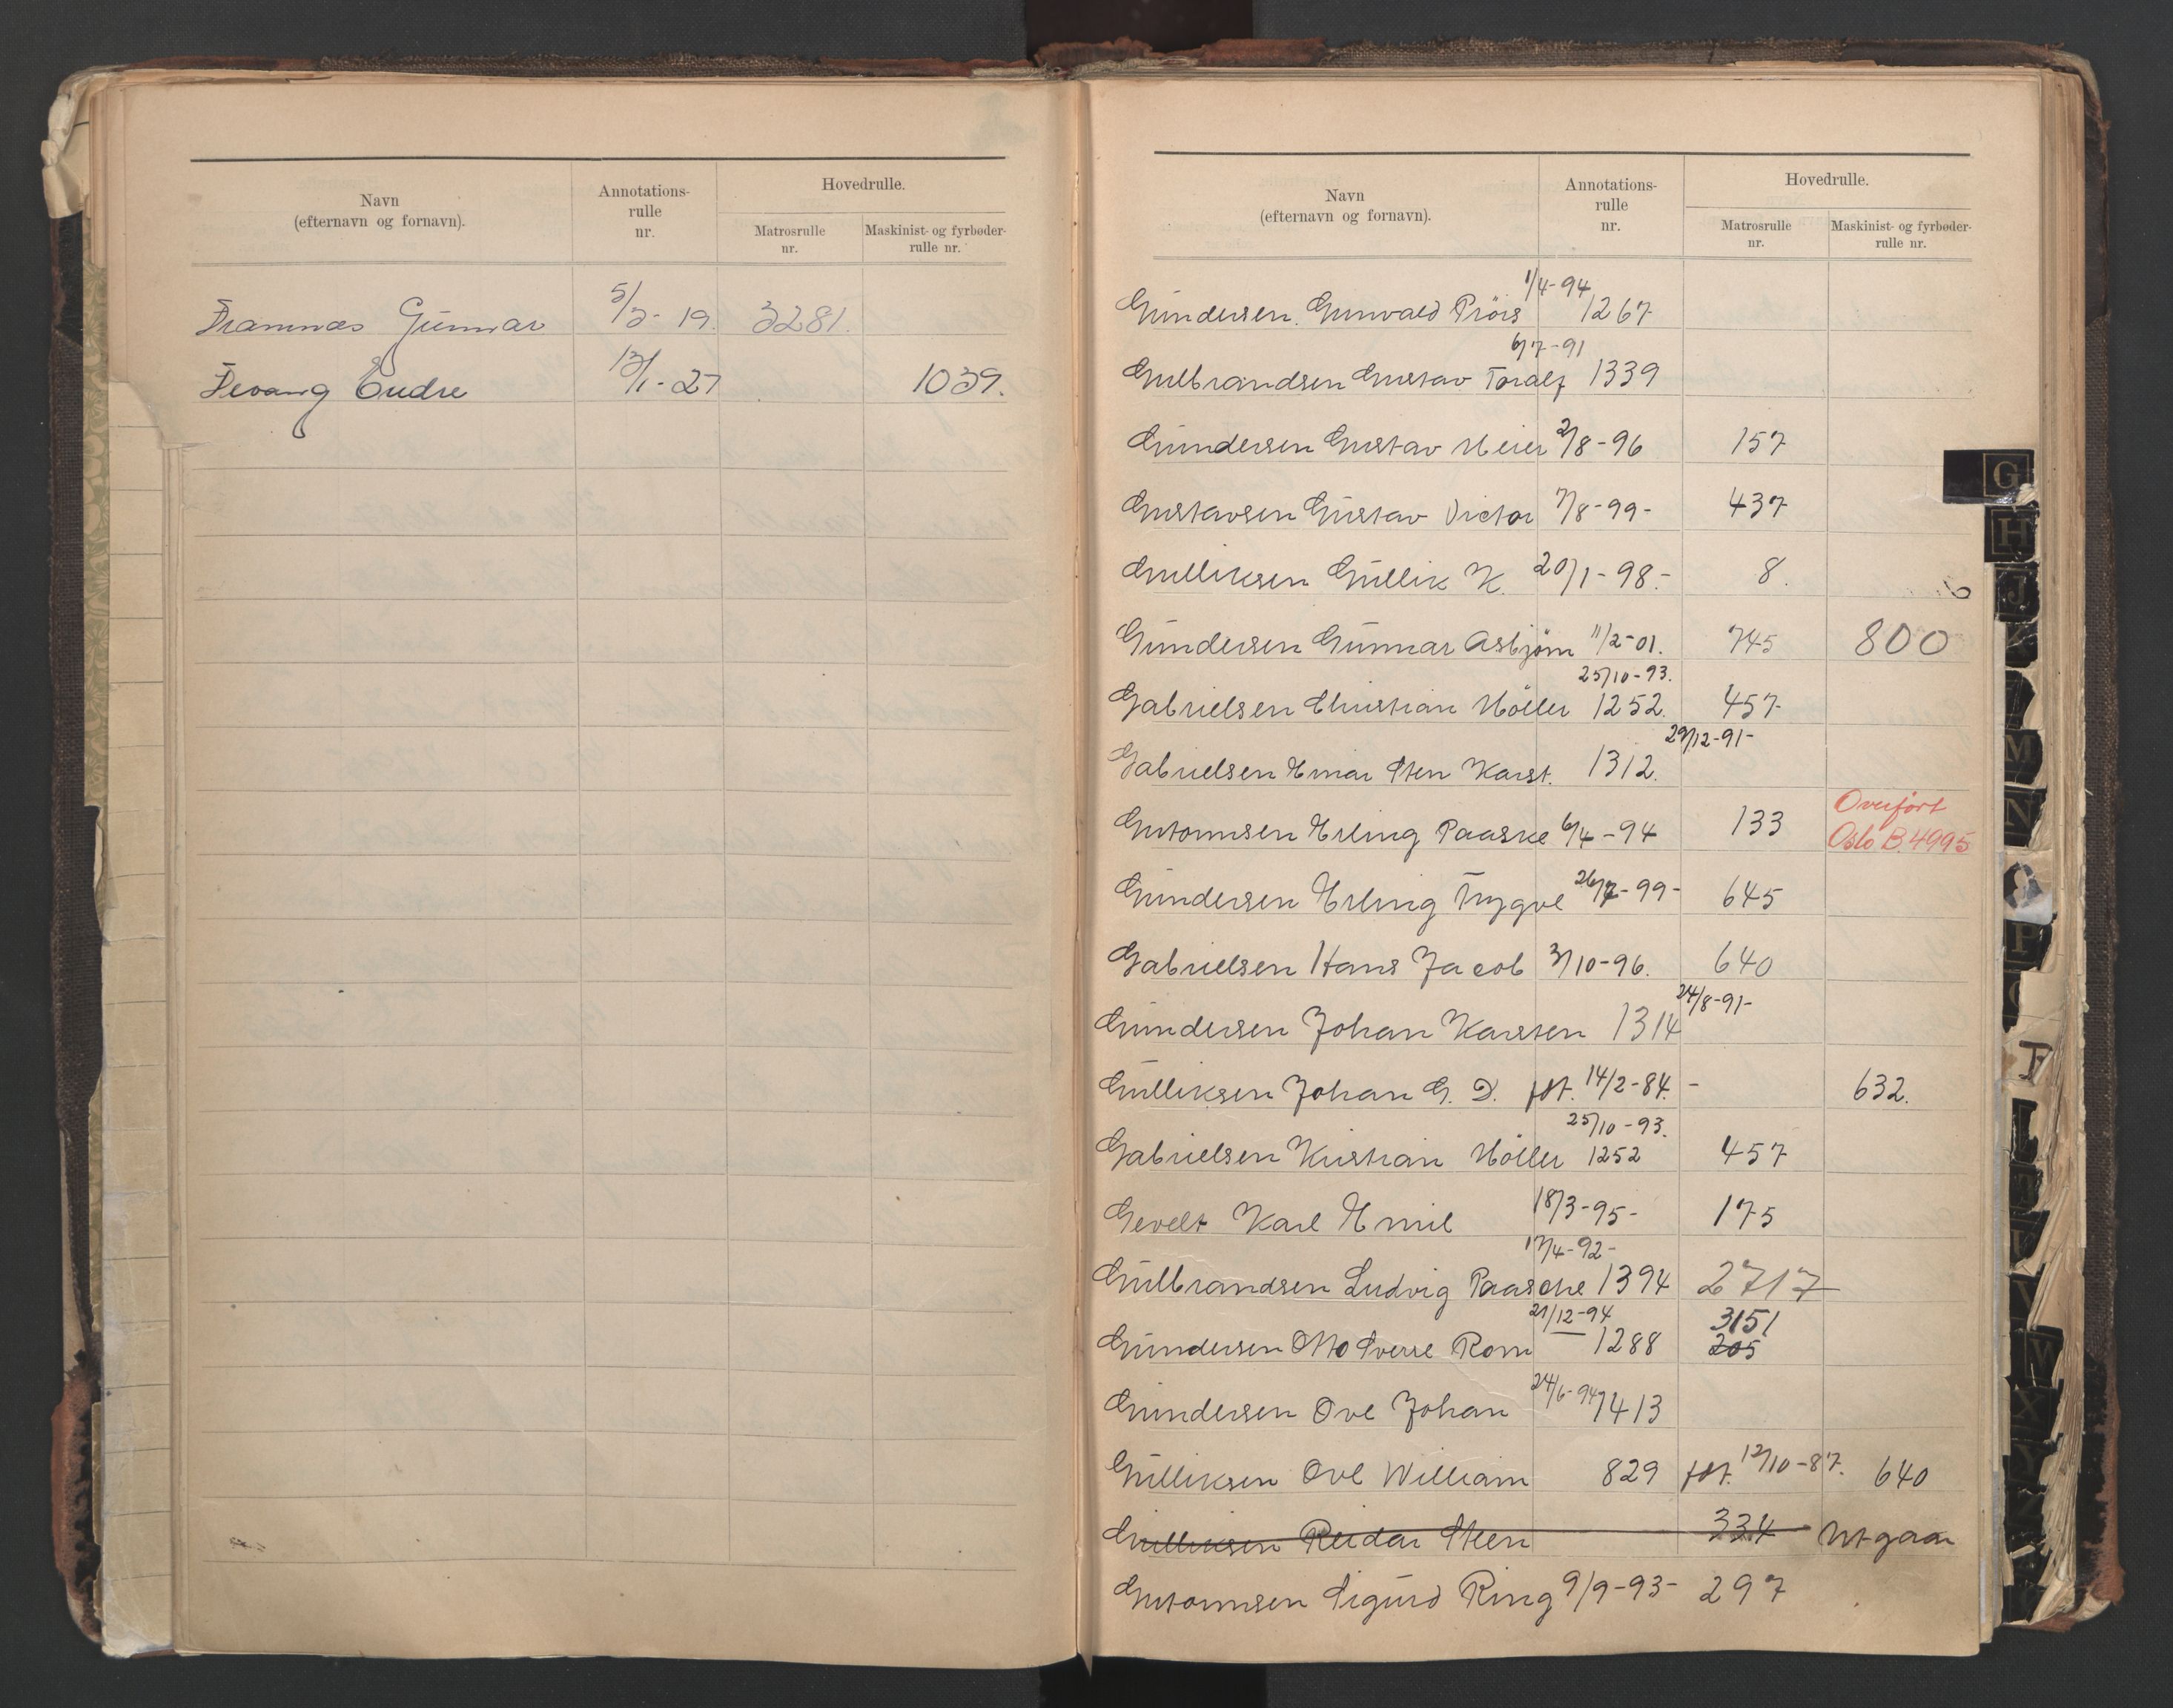 Navn
(efternavn og fornavn).
Annotations-
rulle
nr.
Hovedrulle.
Matrosrulle
nr.
Maskinist- og fyrbøder-
rulle nr.
Framnæs Gunnar 5/3-19. 3281.
Fevang Endre 13/1-27 1039.
Navn
(efternavn og fornavn).
Annotations-
rulle
nr.
Hovedrulle.
Matrosrulle
nr.
Maskinist- og fyrbøder-
rulle nr.
1/4-94
Gundersen. Gunvald Prøis 1267
6/7-91
Gulbrandsen Gustav Toralf 1339
Gundersen Gustav Meier 2/8-96 157
Gustavsen Gustav Victor 7/8-99- 437
Gulliksen Gullik K. 20/1-98.- 8.
Gundersen Gunnar Asbjørn 11/2-01. 745 800
25/10-93.
Gabrielsen Christian Møller 1252. 457
29/12-91-
Gabrielsen Einar Sten Karst. 1312.
Overført
Guttormsen Erling Paaske 6/4-94 133 Oslo B.4995
Gundersen Erling Trygve 26/7-99- 645
Gabrielsen Hans Jacob 3/10-96. 640
24/8-91-
Gundersen Johan Karsten 1314
Gulliksen Johan G. D. fdt. 14/2-84.- 632.
25/10-93.
Gabrielsen Kristian Møller 1252 457
Gevelt Karl Emil 18/3-95- 175
17/4-92-
Gulbrandsen Ludvig Paasche 1394 2717
21/12-94 3151
Gundersen Otto Sverre Rom 1288 205
24/6-94
Gundersen Ove Johan 1413
Gulliksen Ove William 829 fdt. 12/10-87. 640
Gulliksen Reidar Steen 334 Utgaar
Guttormsen Sigurd Ring 9/9-93- 297
G
H
J
M
N
P
W
X